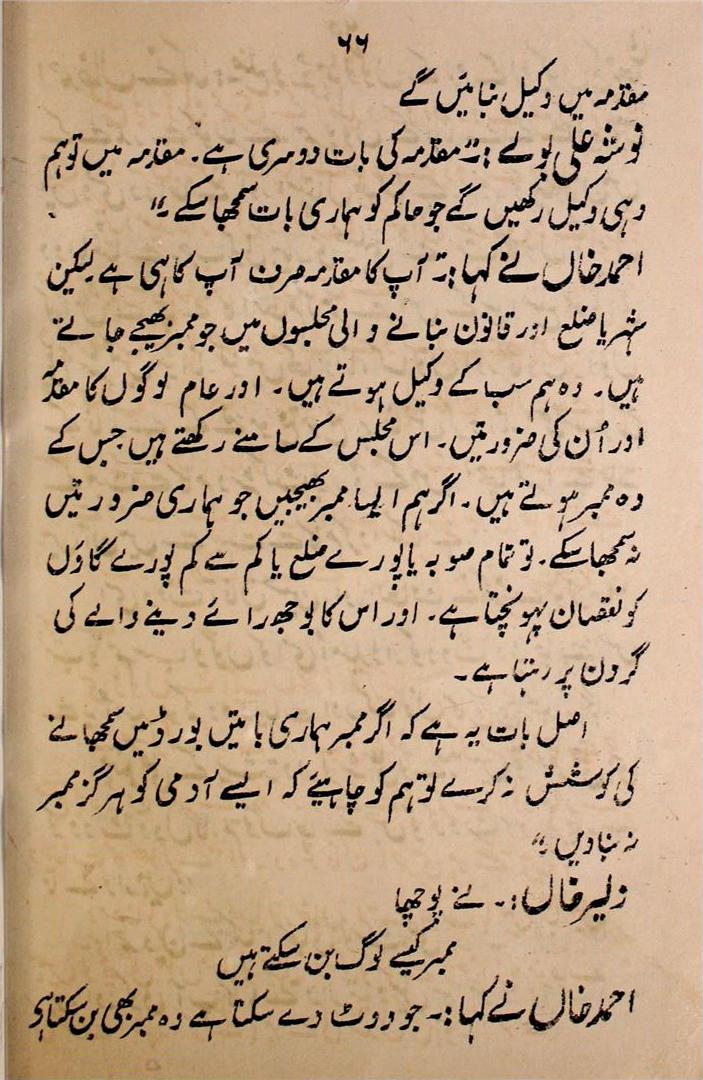 ۶۶
مقدمہ میں وکیل بنائیں گے
نوشہ علی بولے :۔ مقدمہ کی بات دوسری ہے۔ مقدمہ میں تو ہم
وہی وکیل رکھیں گے جو حاکم کو ہماری بات سمجھا سکے ۔"
احمد خاں نے کہا :۔ آپ کا مقدمہ صرف آپ کا ہی ہے لیکن
شہر یا ضلع اور قانون بنانے والی مجلسوں میں جو ممبر بھیجے جاتے
ہیں۔ وہ ہم سب کے وکیل ہوتے ہیں۔ اور عام لوگوں کا مقدمہ
اور اُن کی ضرورتیں۔ اس مجلس کے سامنے رکھتے ہیں جس کے
وہ ممبر ہوتے ہیں۔ اگر ہم ایسا ممبر بھیجیں جو ہماری ضرورتیں
نہ سمجھا سکے۔ تو تمام صوبہ یا پورے ضلع یا کم سے کم پورے گاؤں
کو نقصان پہونچتا ہے۔ اور اس کا بوجھ رائے دینے والے کی
گردن پر رہتا ہے۔
اصل بات یہ ہے کہ اگر ممبر ہماری باتیں بورڈ میں سمجھانے
کی کوشش نہ کرے تو ہم کو چاہیئے کہ ایسے آدمی کو ہرگز ممبر
نہ بنادیں ۔"
دلیر خاں :۔ نے پوچھا
ممبر کیسے لوگ بن سکتے ہیں
احمد خاں نے کہا :۔ جو ووٹ دے سکتا ہے وہ ممبر بھی بن سکتا ہے